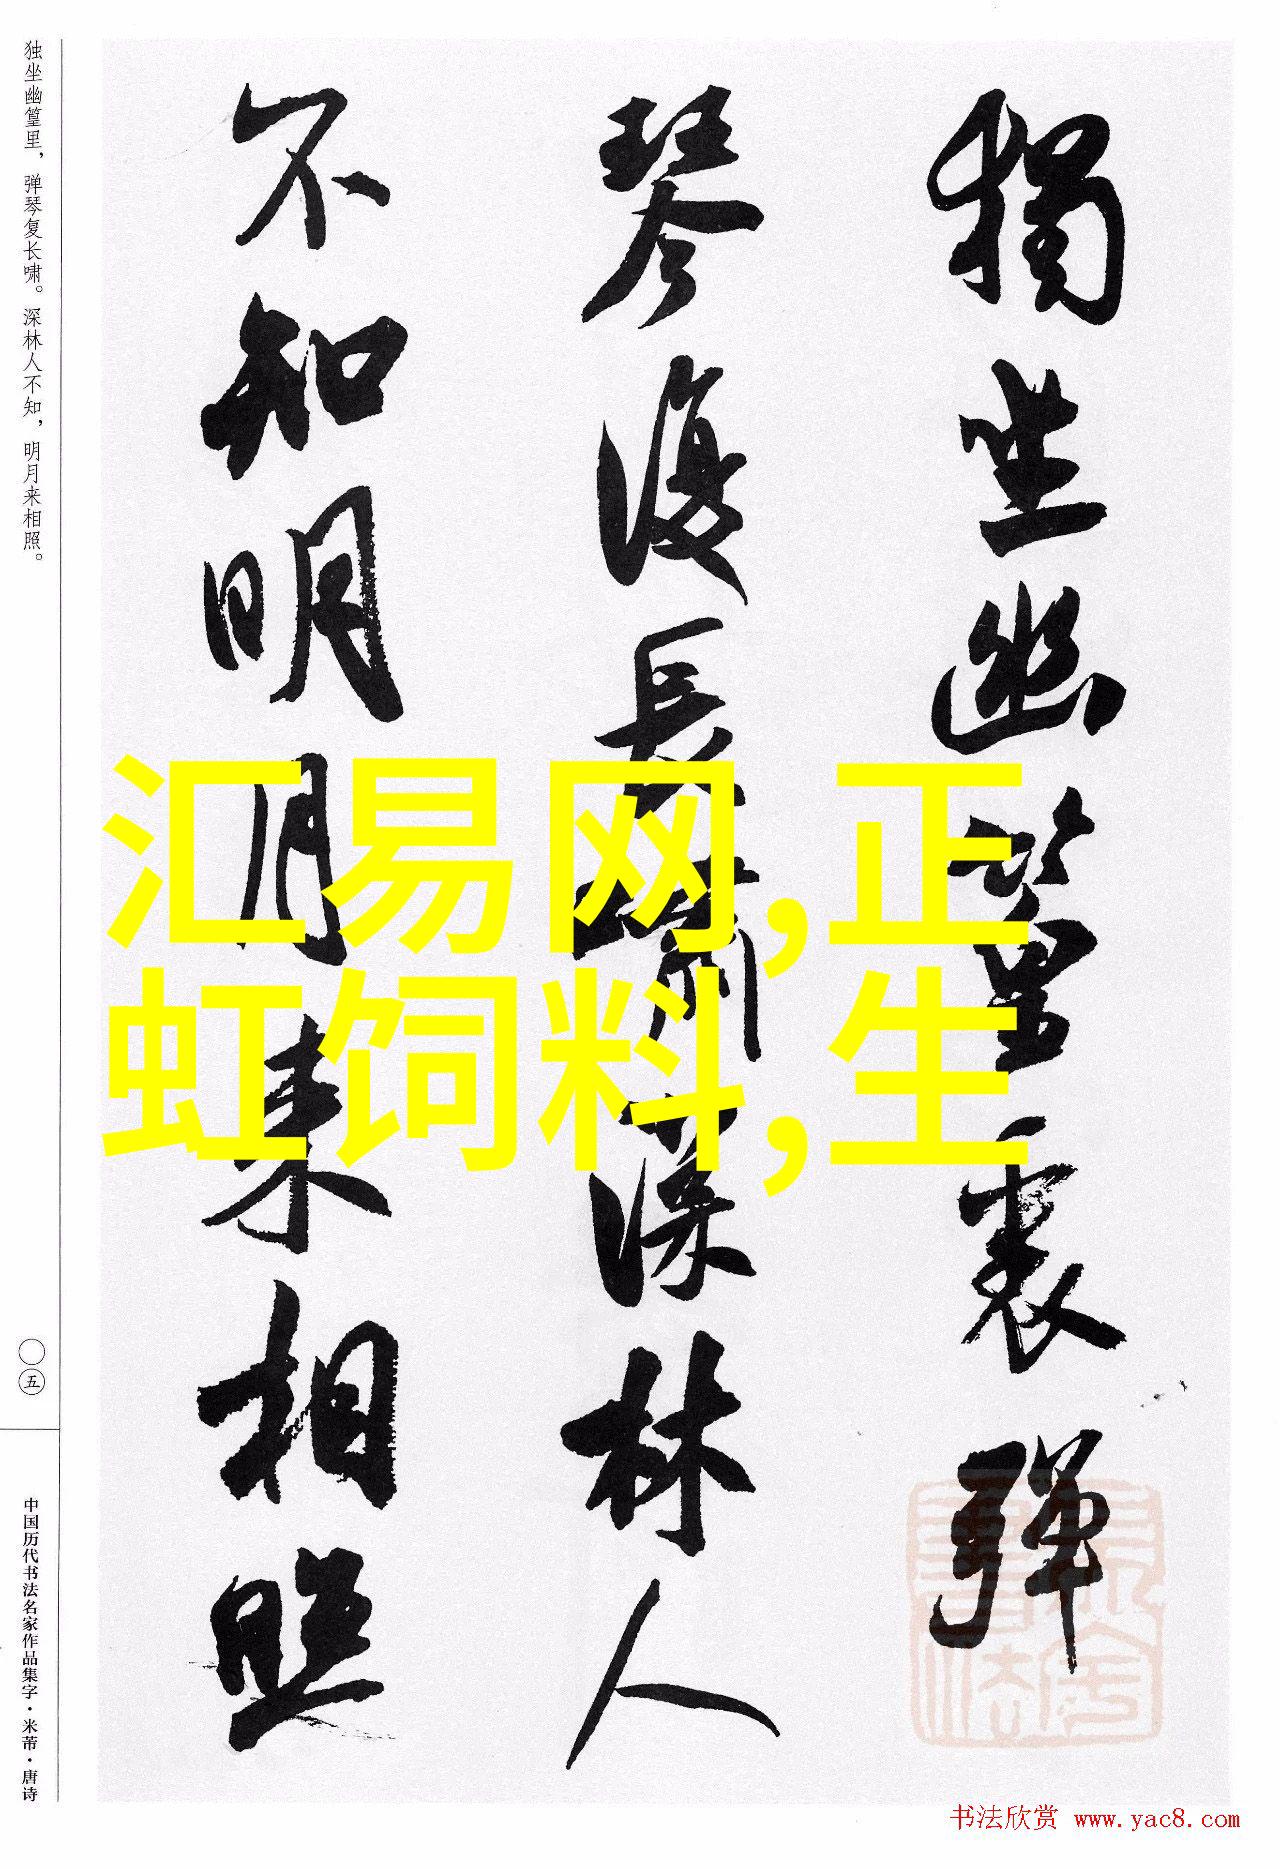 独坐幽篁里，弹琴复长啸。深林人不知，明月来相照。
〇五
中国历代书法名家作品集字·米芾·唐诗
獨坐幽篁裏彈
琴復長嘯深林人
不知明月来相照
汇易网,正
虹饲料,生
书法欣赏 www.yac8.com